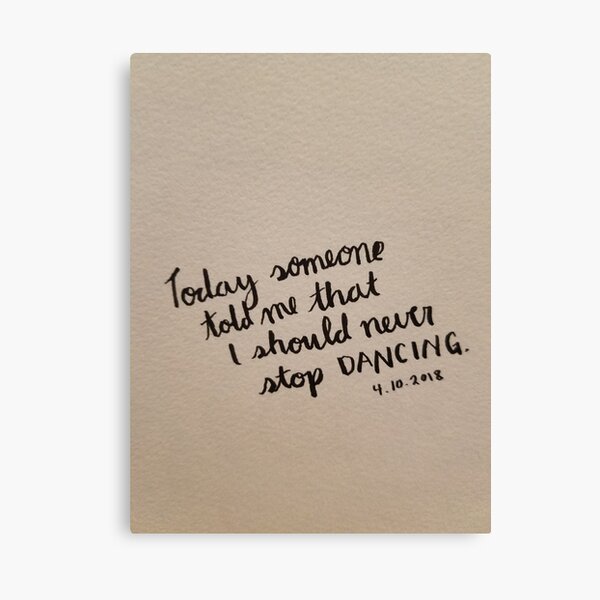 Today someone
told me that
I should never
stop DANCING.
4.10.2018